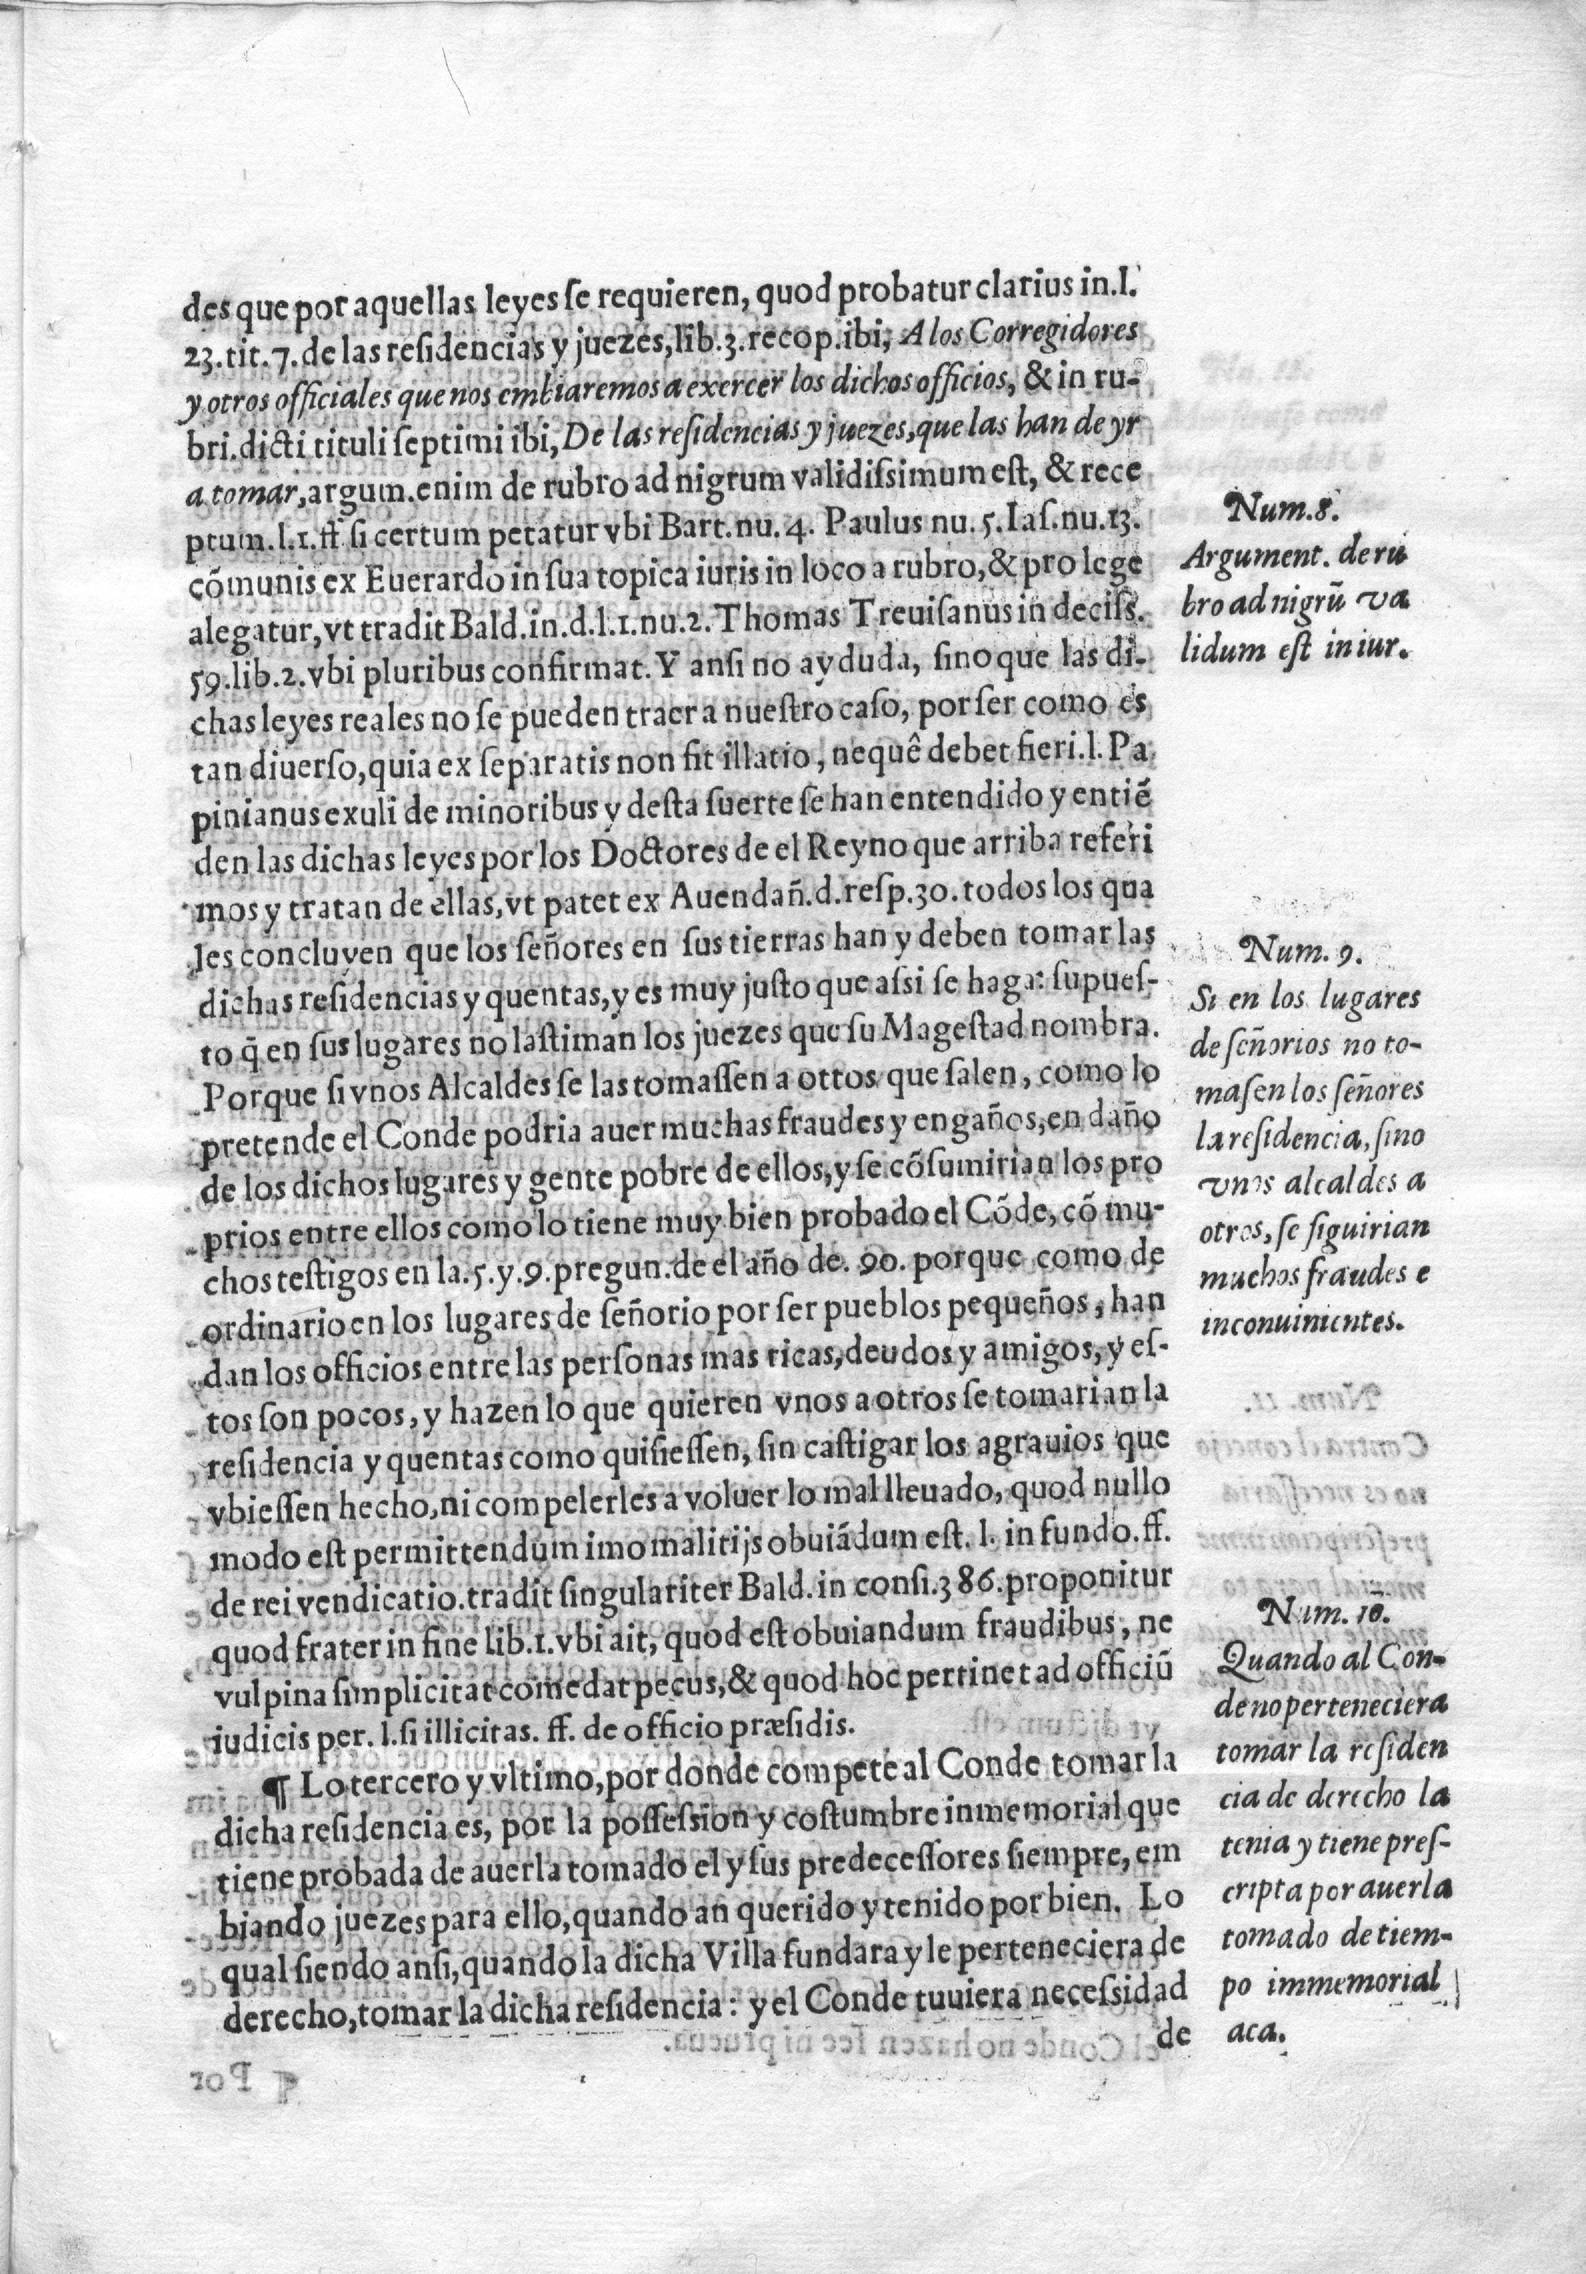 des que por aquellas leyes se requieren, quod probatur clarius in.l.
23.tit.7.de las residencias y juezes,lib.3.recop.ibi, A los Corregidores
y otros officiales que nos embiaremos a exercer los dichos officios, & in ru-
bri.dicti tituli septimi ibi, De las residencias y juezes,que las han de yr
a tomar,argum.enim de rubro ad nigrum validissimum est, & rece
ptum.l.1.ff si certum petatur vbi Bart.nu.4. Paulus nu.5.Ias.nu.13.
cõmunis ex Euerardo in sua topica iuris in loco a rubro,& pro lege
alegatur,vt tradit Bald.in.d.l.1.nu.2. Thomas Treuisanus in deciss.
59.lib.2.vbi pluribus confirmat. Y ansi no ay duda, sino que las di-
chas leyes reales no se pueden traer a nuestro caso, por ser como es
tan diuerso,quia ex separatis non fit illatio, nequê debet fieri.l.Pa
pinianus exuli de minoribus y desta suerte se han entendido y entiẽ
den las dichas leyes por los Doctores de el Reyno que arriba referi
mos y tratan de ellas,vt patet ex Auendañ.d.resp.30.todos los qua
les concluyen que los señores en sus tierras han y deben tomar las
dichas residencias y quentas,y es muy justo que assi se haga: supues-
to q̃ en sus lugares no lastiman los juezes que su Magestad nombra.
Porque si vnos Alcaldes se las tomassen a ottos que salen, como lo
pretende el Conde podria auer muchas fraudes y engaños,en daño
de los dichos lugares y gente pobre de ellos,y se cõsumirian los pro
prios entre ellos como lo tiene muy bien probado el Cõde, cõ mu-
chos testigos en la.5.y.9.pregun.de el año de.90. porque como de
ordinario en los lugares de señorio por ser pueblos pequeños, han
dan los officios entre las personas mas ricas,deudos y amigos,y es-
tos son pocos, y hazen lo que quieren vnos a otros se tomarian la
residencia y quentas como quisiessen, sin castigar los agrauios que
vbiessen hecho,ni compelerles a voluer lo mal lleuado, quod nullo
modo est permittendum imo malitijs obuiãdum est. l. in fundo.ff.
de rei vendicatio.tradit singulariter Bald.in consi.386.proponitur
quod frater in fine lib.1.vbi ait, quod est obuiandum fraudibus, ne
vulpina simplicitat comedat pecus,& quod hoc pertinet ad officiũ
iudicis per. l.si illicitas. ff. de officio præsidis.
¶ Lo tercero y vltimo,por donde compete al Conde tomar la
dicha residencia es, por la possession y costumbre inmemorial que
tiene probada de auerla tomado el y sus predecessores siempre, em
biando juezes para ello,quando an querido y tenido por bien. Lo
qual siendo ansi,quando la dicha Villa fundara y le perteneciera de
derecho,tomar la dicha residencia: y el Conde tuuiera necessidad
de
Num.8.
Argument. de ru
bro ad nigrũ va
lidum est in iur.
Num. 9.
Si en los lugares
de señorios no to-
masen los señores
la residencia, sino
vnos alcaldes a
otros, se siguirian
muchos fraudes e
inconuinientes.
Num. 10.
Quando al Con-
de no perteneciera
tomar la residen
cia de derecho la
tenia y tiene pres-
cripta por auerla
tomado de tiem-
po immemorial
aca.